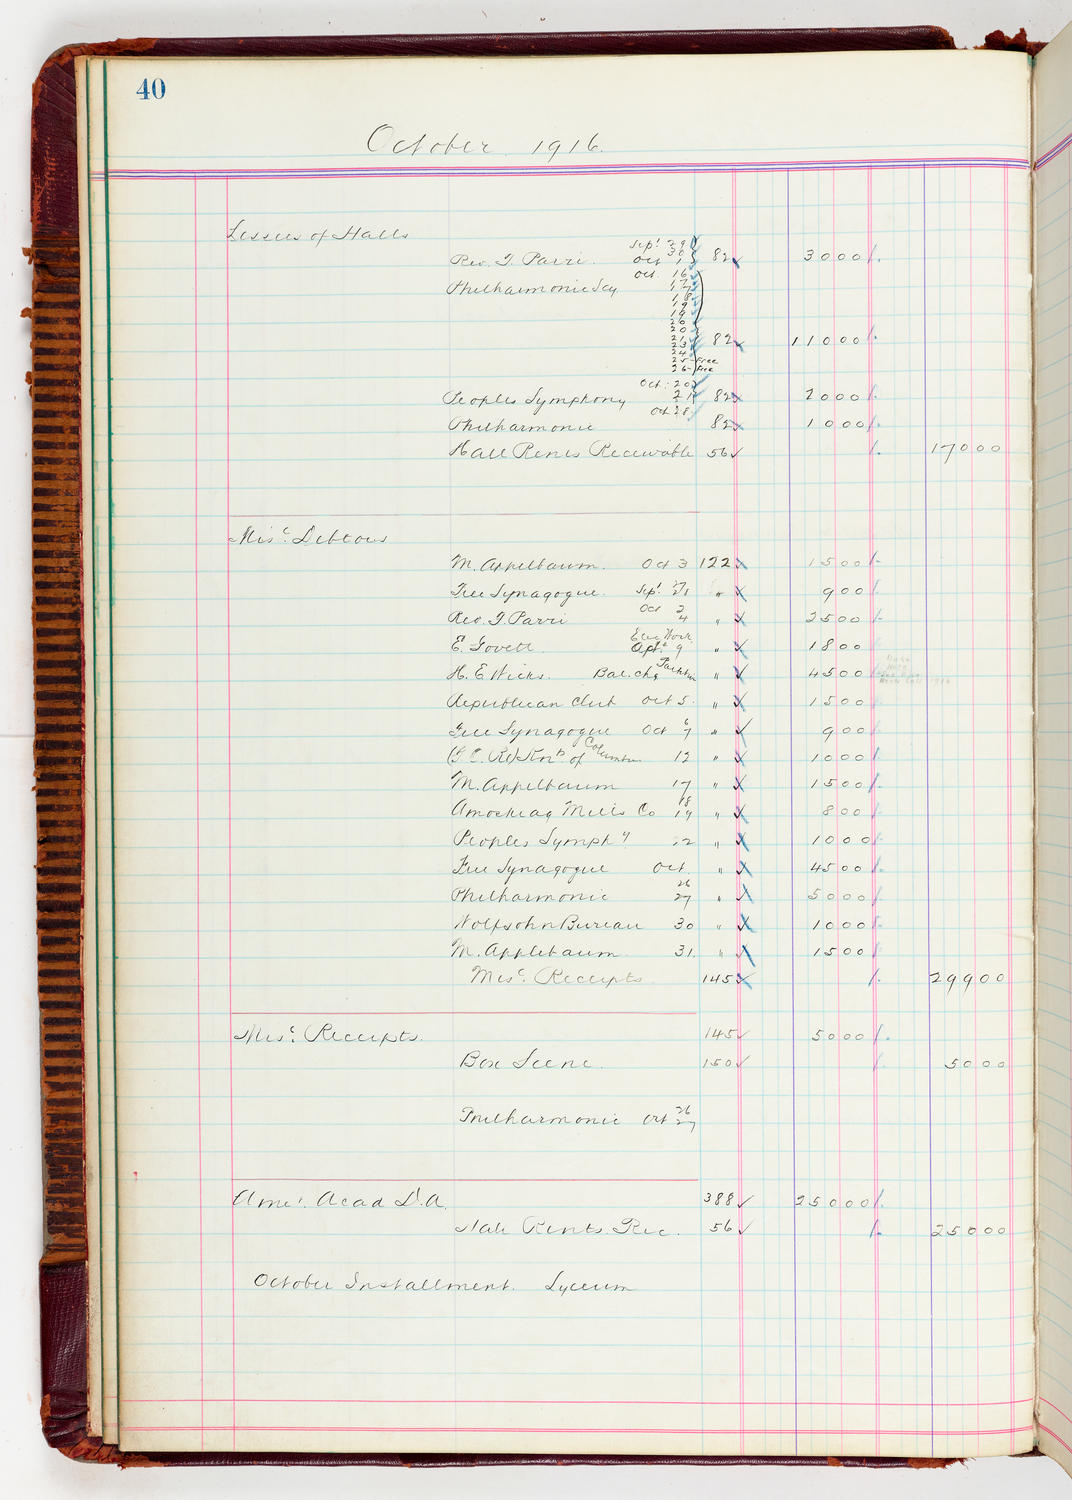 40
October 1916.
Lessees of Halls
Sept. 29
30
Rev. J. Parri. Oct. 1 82 3000
Oct. 16
Philharmonic Socy 17
18
19
19
20
20
21
23
24 82 11000
25-Free
26-Free
Oct. 20
Peoples Symphony 21 82 2000
Oct. 28
Philharmonic 82 1000
Hall Rents Receivable 56 17000
Misc. Debtors
M. Appelbaum. Oct 3 122 1500
Free Synagogue. Sept. 21 " 900
Rev. J. Parri Oct 2 4 " 2500
E. Govett. Elec Work Apt. 9 " 1800
H. E. Wicks. Bal. chg " 4500
Republican Club Oct 5. " 1500
Free Synagogue Oct 6 7 " 900
Knts of Columbus 12 " 1000
M. Appelbaum 17 " 1500
Amoskeag Mills Co 18 19 " 800
Peoples Symphy 22 " 1000
Free Synagogue Oct. " 4500
Philharmonic 26 27 " 5000
Wolfsohn Bureau 30 " 1000
M. Applebaum 31. " 1500
Misc. Receipts 145 29900
Misc. Receipts. 145 5000
Box Scene. 150 5000
Philharmonic Oct 26 27
Amer. Acad D.A. 388 25000
Hall Rents. Rec. 56 25000
October Installment. Lyceum